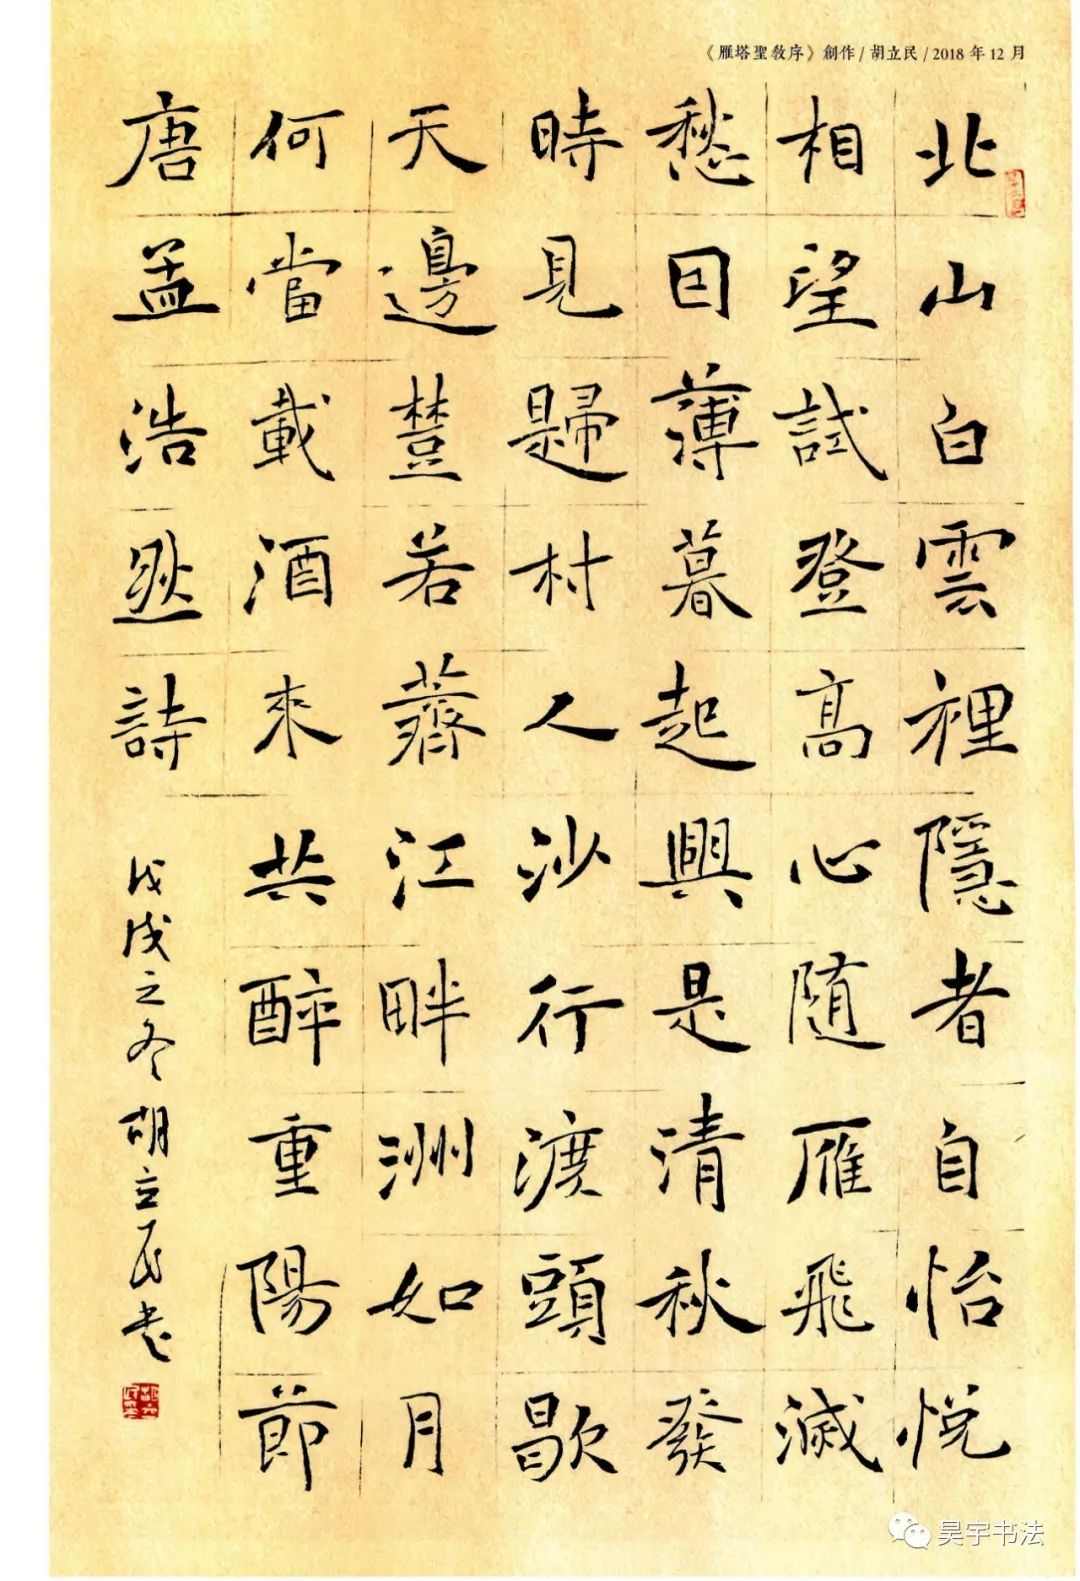 《雁塔聖敎序》創作/胡立民/2018年12月
北山白雲裡隱者自怡悅
相望試登高心随雁飛滅
愁因薄暮起興是清秋發
時見歸村人沙行渡頭歇
天邊樹若薺江畔洲如月
何當載酒來共醉重陽節
唐孟浩然詩
戊戌之冬胡立民書
昊宇书法